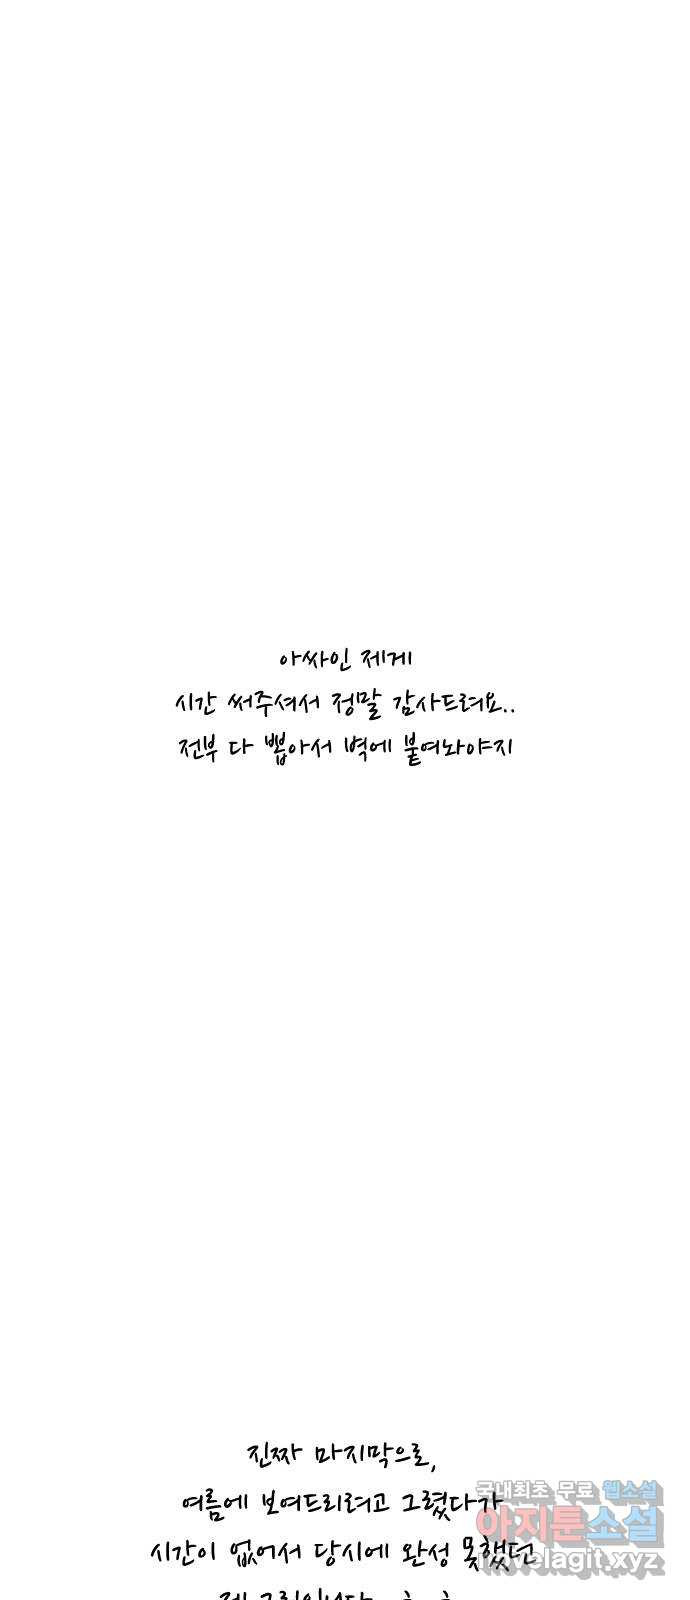 아싸인 제게
시간 써주셔서 정말 감사드려요..
전부 다 뽑아서 벽에 붙여놔야지
진짜 마지막으로,
여름에 보여드리려고 그렸다가
시간이 없어서 당시에 완성 못했던
국내최초 무료 웹소설
아지툰소설
novelagit.xyz